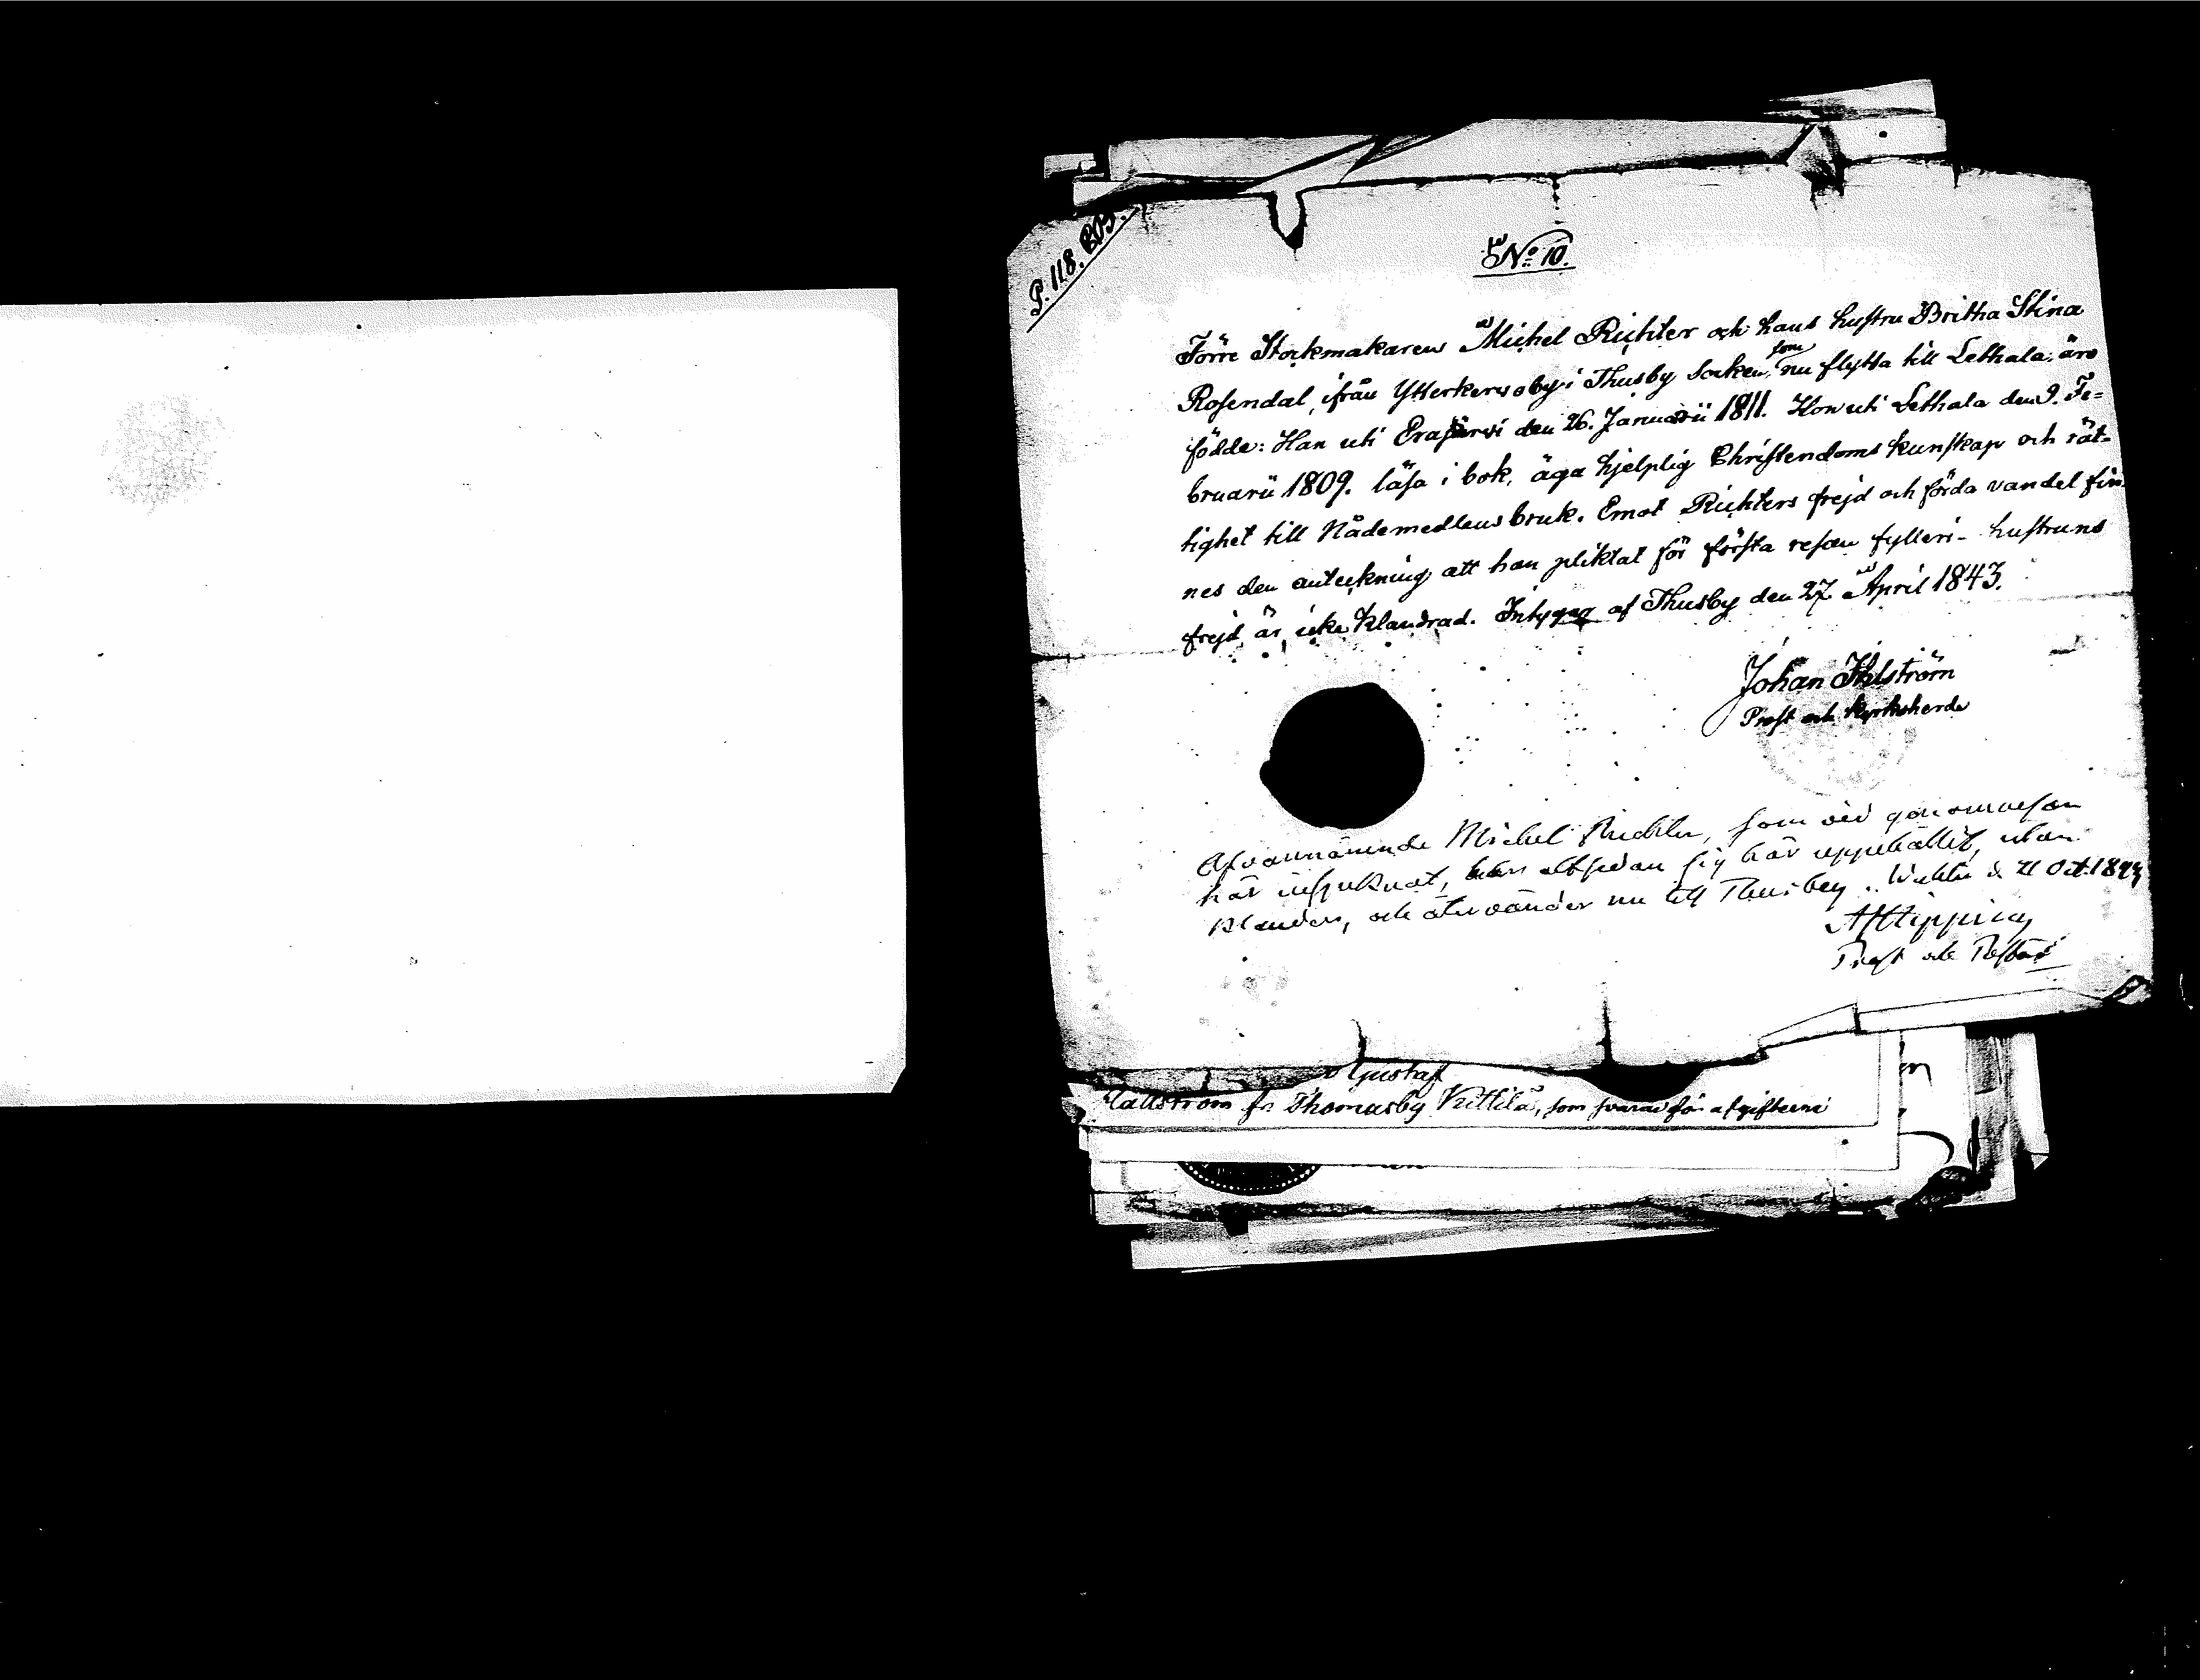 P. 118. 203.
No 10.
Förre Stockmakaren Michel Richter och hans hustru Britha Stina
Rosendal, ifrån Ytterkervoby i Thusby Socken, som nu flytta till Lethala, äro
födde: Han uti Erajärvi den 26. Januarii 1811. Hon uti Lethala den 9. Fe-
bruarii 1809. läsa i bok, äga hjelplig Christendoms kunskap och rät-
tighet till Nådemedlens bruk. Emot Richters frejd och förda vandel fin-
nes den anteckning att han pliktat för första resan fylleri - hustruns
frejd är icke klandrad. Intygar af Thusby den 27 April 1843.
Johan Ihlström
Prost och Kyrkoherde
Ofvannämnde Michel Richter, som vid genomresan
här insjuknat, har altsedan sig här uppehållit, utan
klander, och återvänder nu till Thusby. d. 21 Oct. 1843
Prost och Pastor
Gustaf
Hallström fr Thomasby Kittilä, som svarar för afgifterne